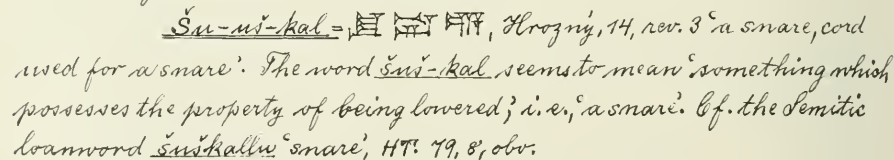 Šu-uš-kal = 𒋗 𒍑 𒆗, Hrozný, 14, rev. 3 ‘a snare, cord
used for a snare’. The word šuš-kal seems to mean ‘something which
possesses the property of being lowered’, i.e., ‘a snare’. Cf. the Semitic
loanword šuškallu ‘snare’, HT. 79, 8, obv.